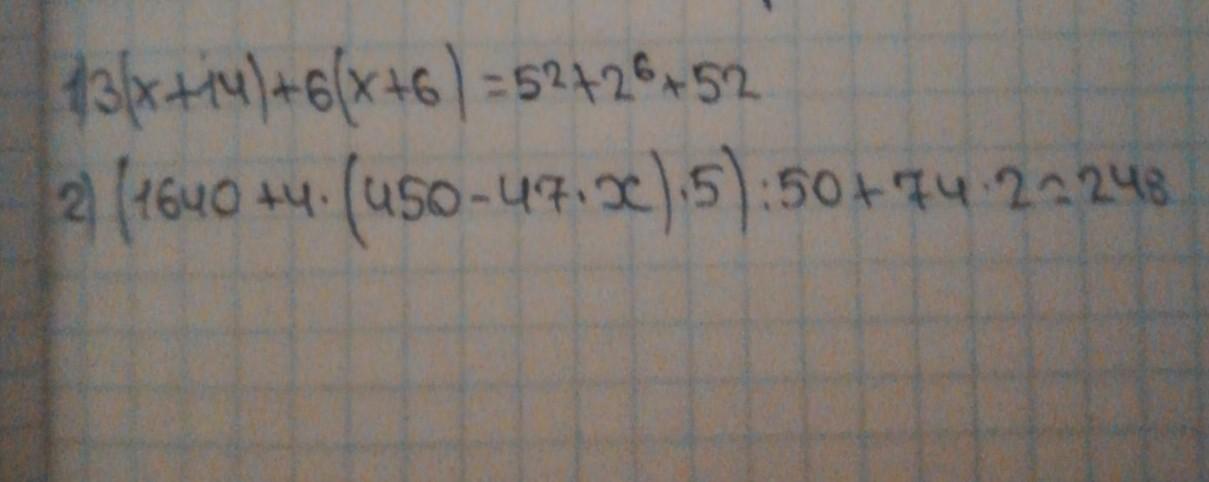 1) 3(x+14)+6(x+6)=5²+2⁶+52
2) (1640+4·(450-47·x)·5):50+74·2=248